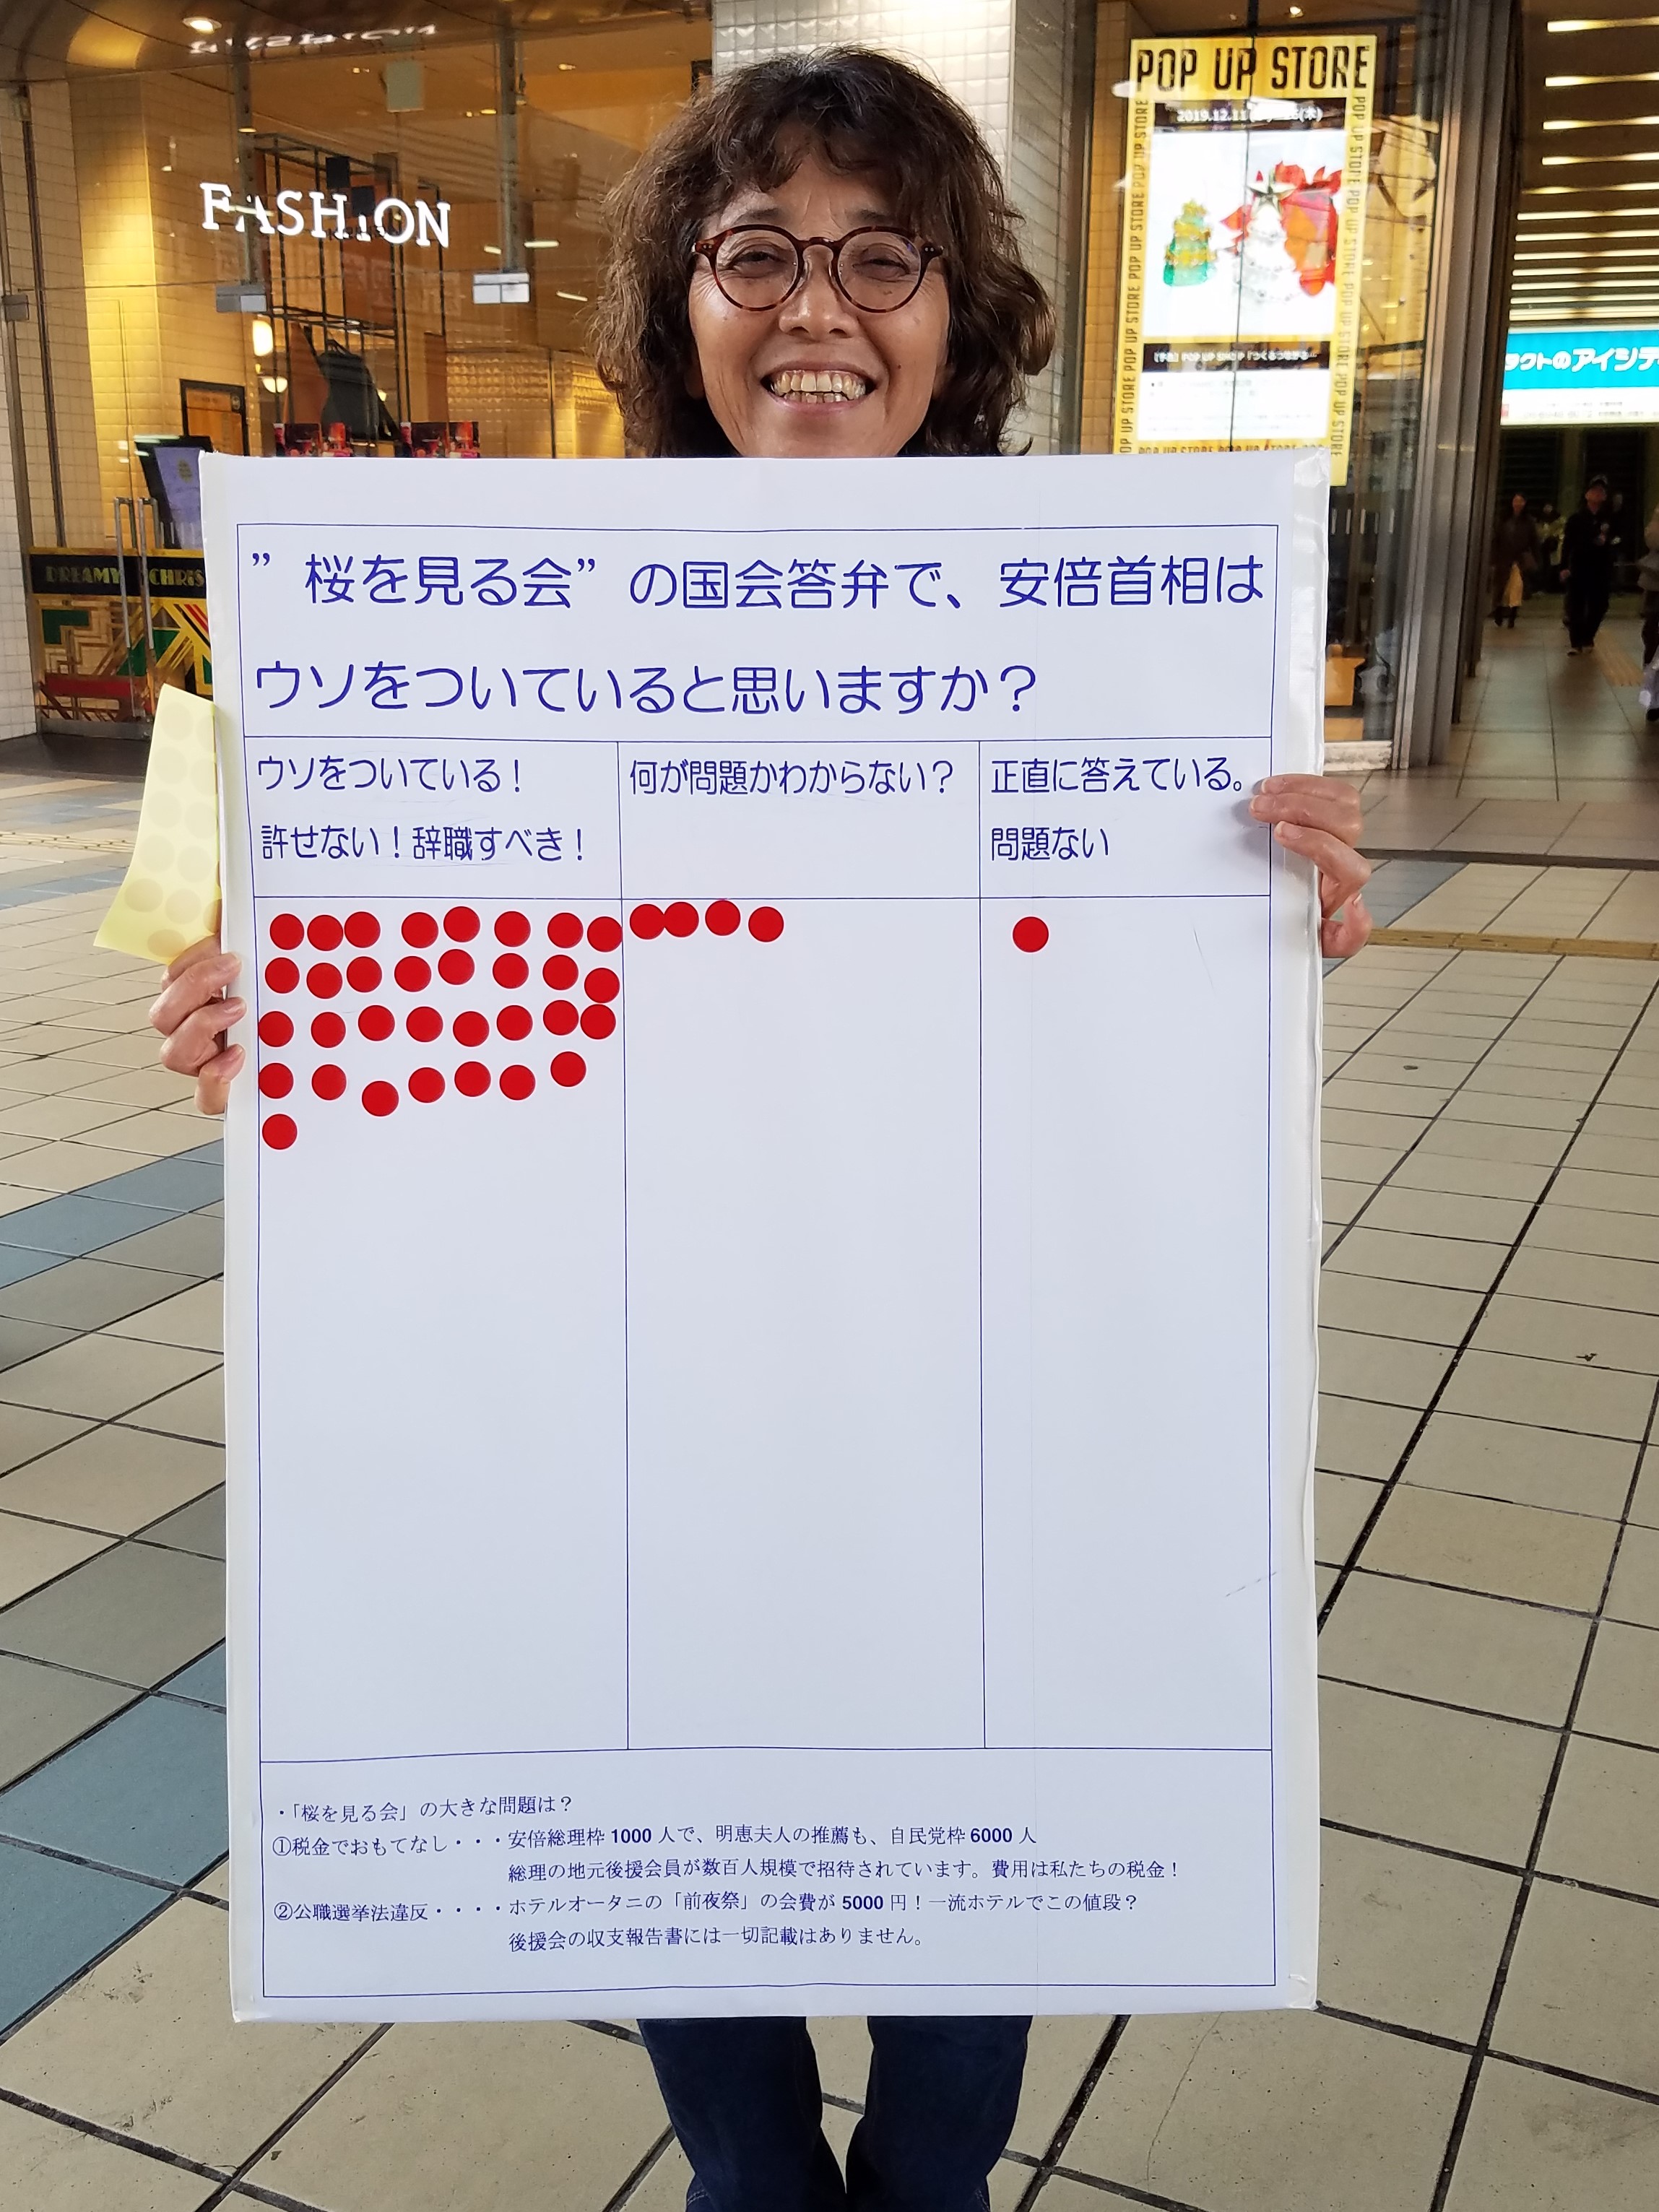 FASHION
POP UP STORE
2019.12.11
POP UP STORE POP UP STORE POP UP STORE POP UP STORE
POP UP STORE POP UP STORE POP UP STORE POP UP STORE
POP UP STORE POP UP STORE
クトのアイシテ
DREAMY CHRIS
”桜を見る会”の国会答弁で、安倍首相は
ウソをついていると思いますか？
ウソをついている！
許せない！辞職すべき！
何が問題かわからない？
正直に答えている。
問題ない
・「桜を見る会」の大きな問題は？
①税金でおもてなし・・・安倍総理枠1000人で、明恵夫人の推薦も、自民党枠6000人
総理の地元後援会員が数百人規模で招待されています。費用は私たちの税金！
②公職選挙法違反・・・・ホテルオータニの「前夜祭」の会費が5000円！一流ホテルでこの値段？
後援会の収支報告書には一切記載はありません。